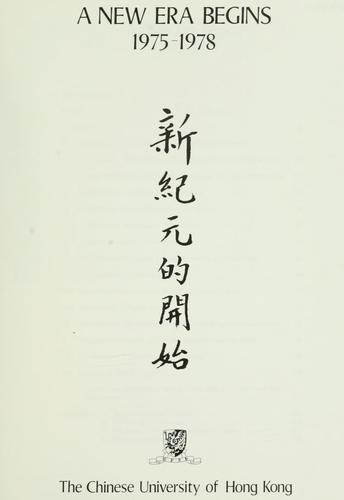 A NEW ERA BEGINS
1975-1978
新紀元的開始
The Chinese University of Hong Kong